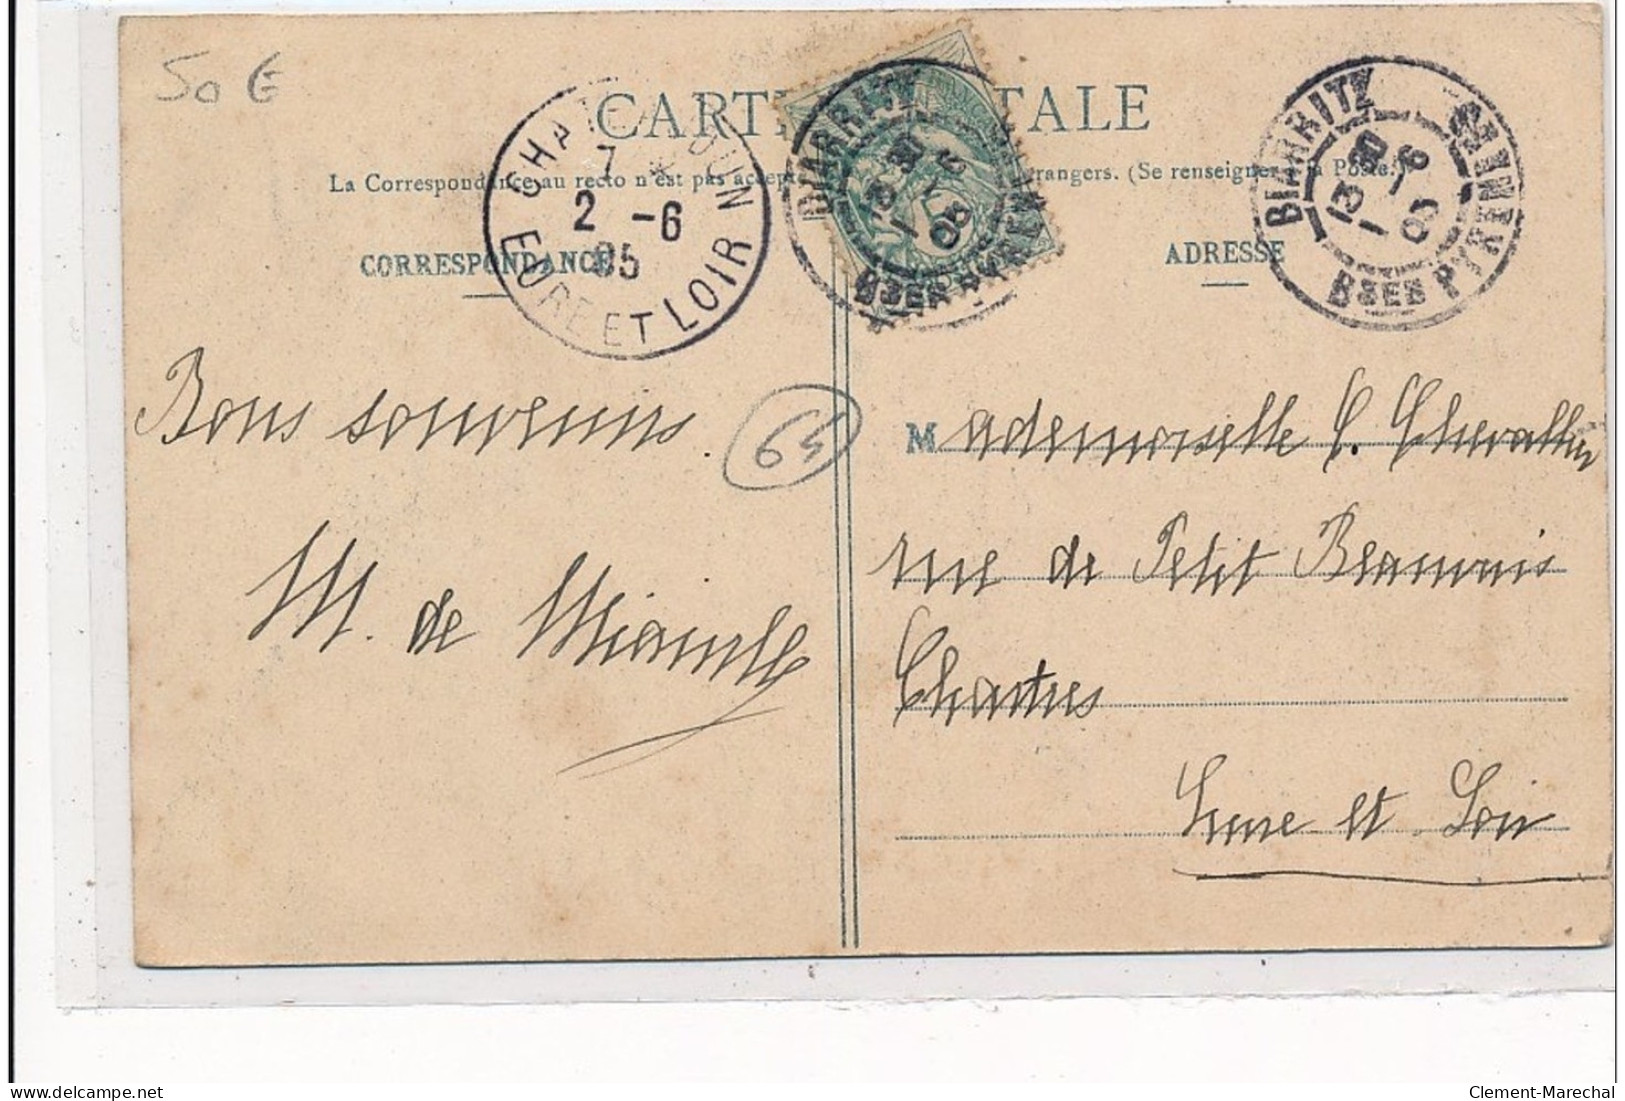 50 €
CARTE POSTALE
La Correspondance au recto n'est pas accep trangers. (Se renseigner à la Poste.)
CHATEAUDUN
7
2 -6
05
EURE ET LOIR
BIARRITZ
13 30
1 -6
05
BSES PYRENEES
BIARRITZ
13 30
1 -6
05
BSES PYRENEES
CORRESPONDANCE
ADRESSE
Bons souvenirs.
64
M. de
Mademoiselle C. Chevallier
rue de Petit Beauvais
Chartres
Eure et Loir
Clement-Marechal